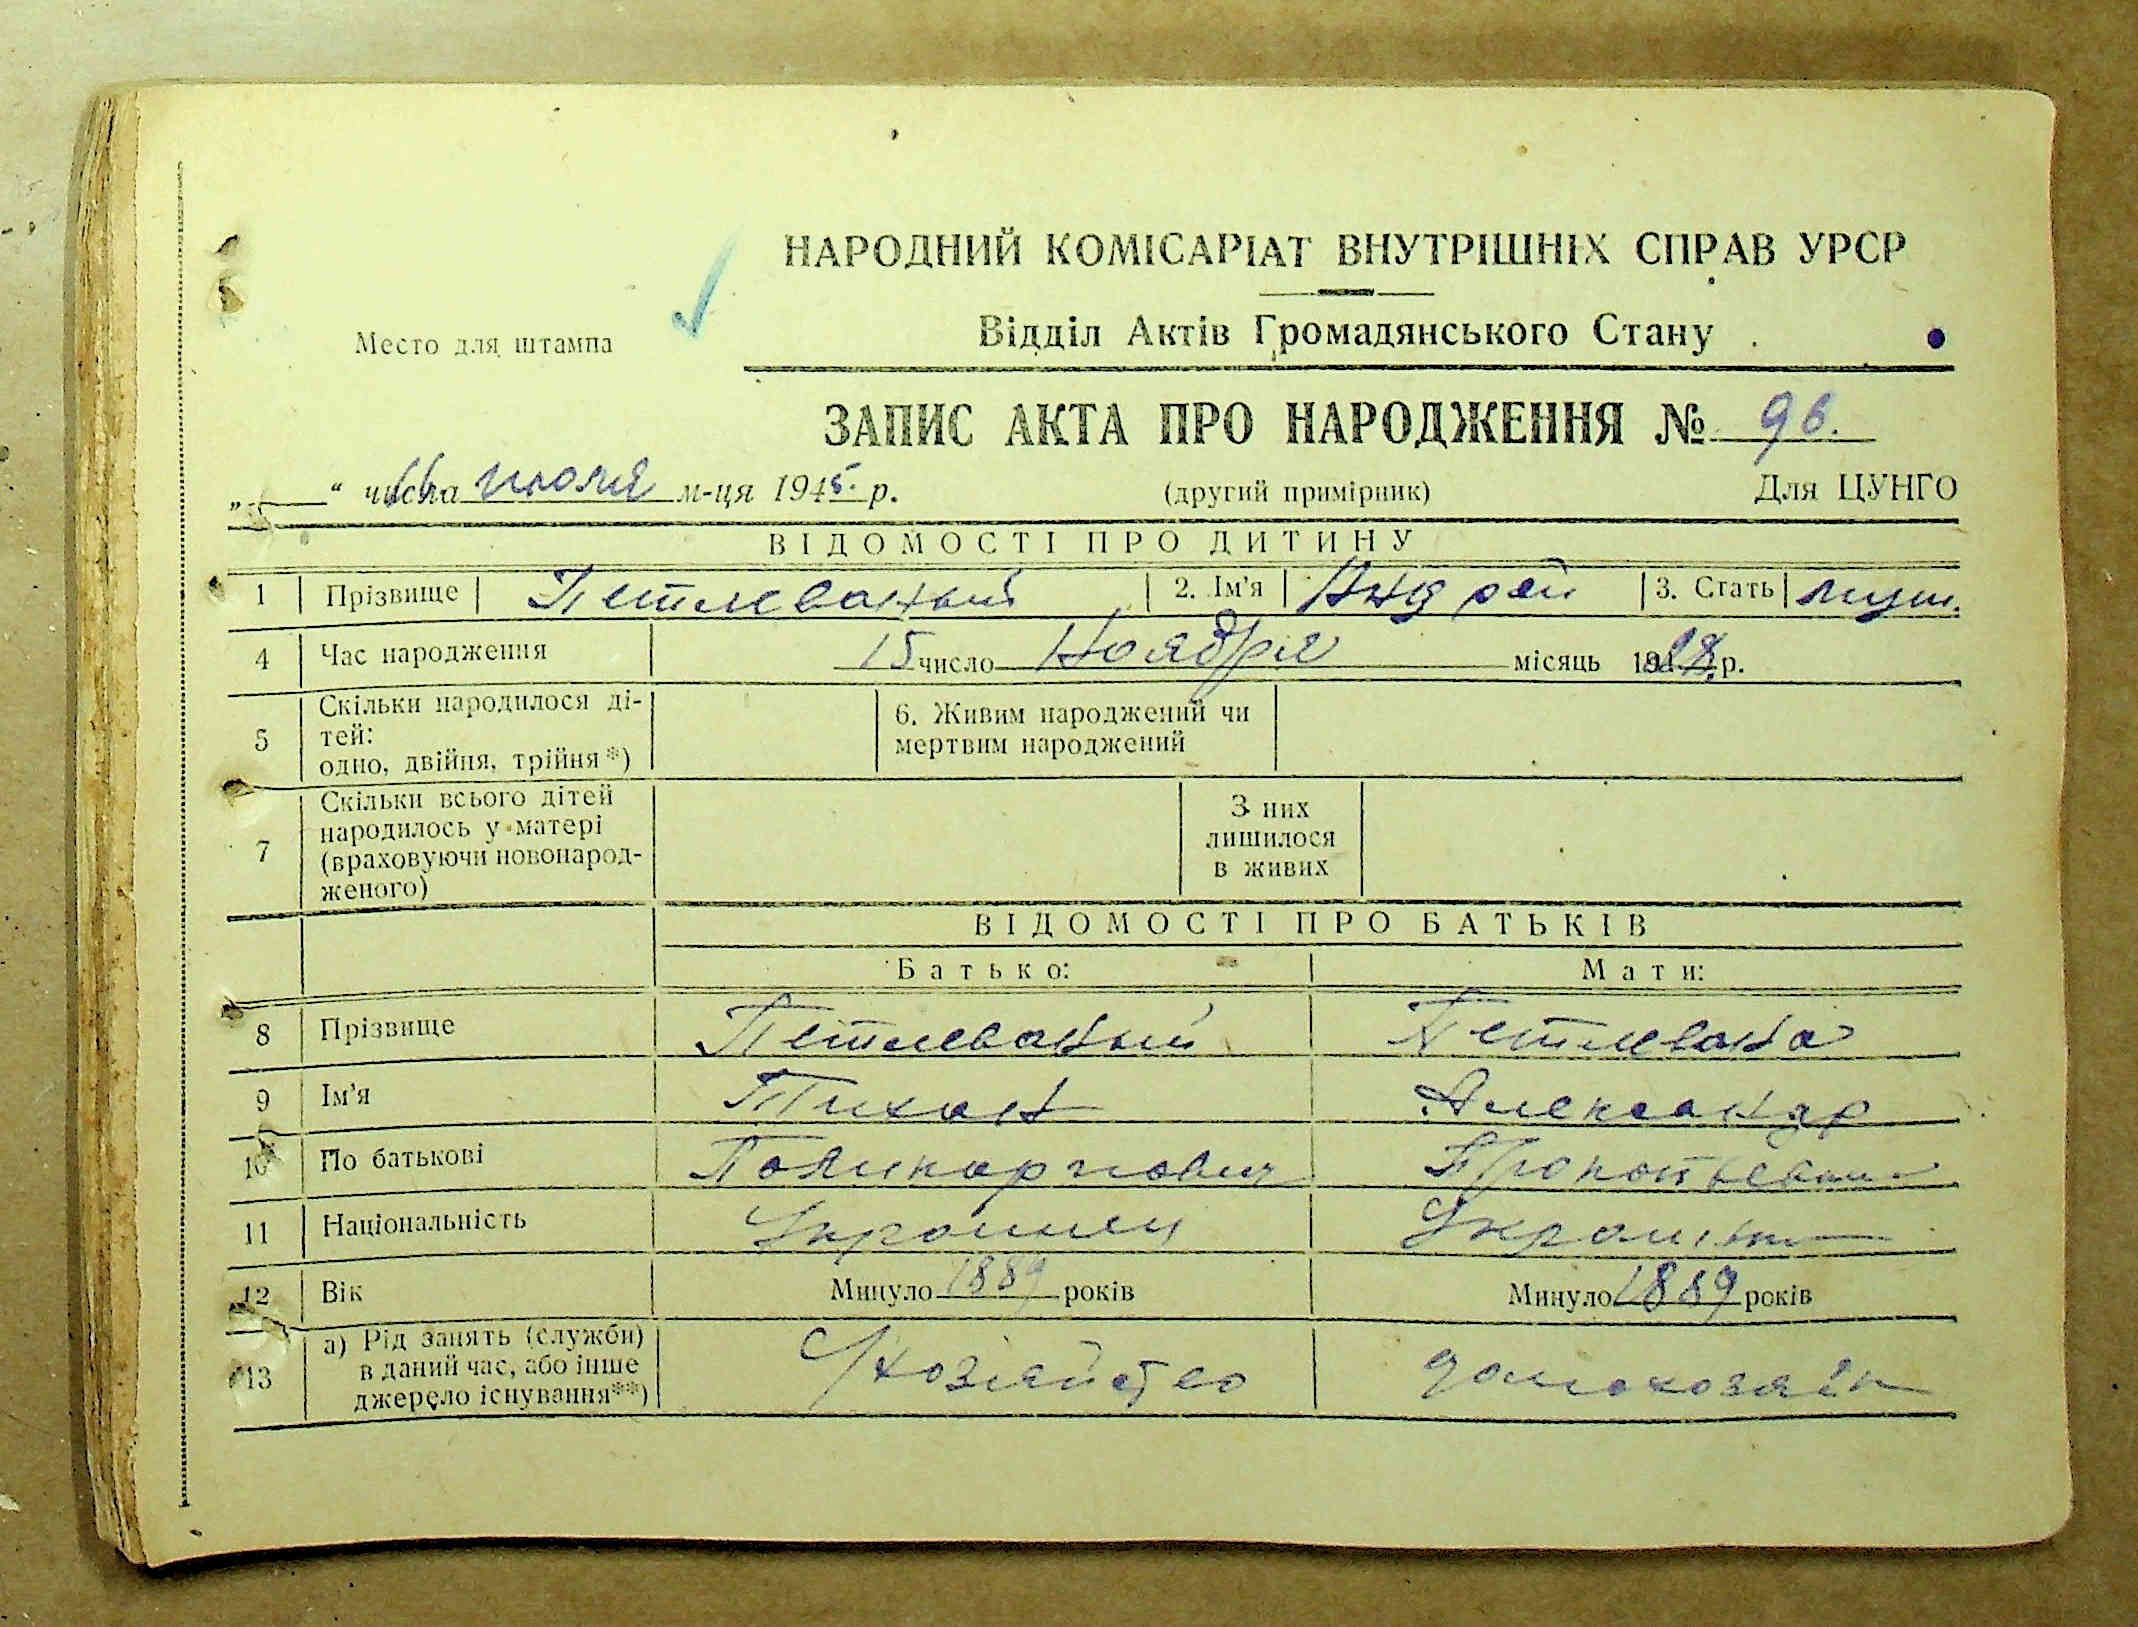 НАРОДНИЙ КОМІСАРІАТ ВНУТРІШНІХ СПРАВ УРСР
Место для штампа
Відділ Актів Громадянського Стану
ЗАПИС АКТА ПРО НАРОДЖЕННЯ № 96.
„ “ числа июля м-ця 1945 р. (другий примірник) Для ЦУНГО
ВІДОМОСТІ ПРО ДИТИНУ
1 Прізвище Петлеваный 2. Ім'я Андрей 3. Стать муж.
4 Час народження 15 число Ноября місяць р.
5 Скільки народилося ді-
тей:
одно, двійня, трійня*)
6. Живим народжений чи
мертвим народжений
7 Скільки всього дітей
народилось у матері
(враховуючи новонарод-
женого)
З них
лишилося
в живих
ВІДОМОСТІ ПРО БАТЬКІВ
Батько: Мати:
8 Прізвище Петлеваный Петлевана
9 Ім'я Тихон Александр
10 По батькові Поликарпович
11 Національність Украинец
12 Вік Минуло 1889 років Минуло 1889 років
13 а) Рід занять (служби)
в даний час, або інше
джерело існування**)
С/хозяйство домохозяйк